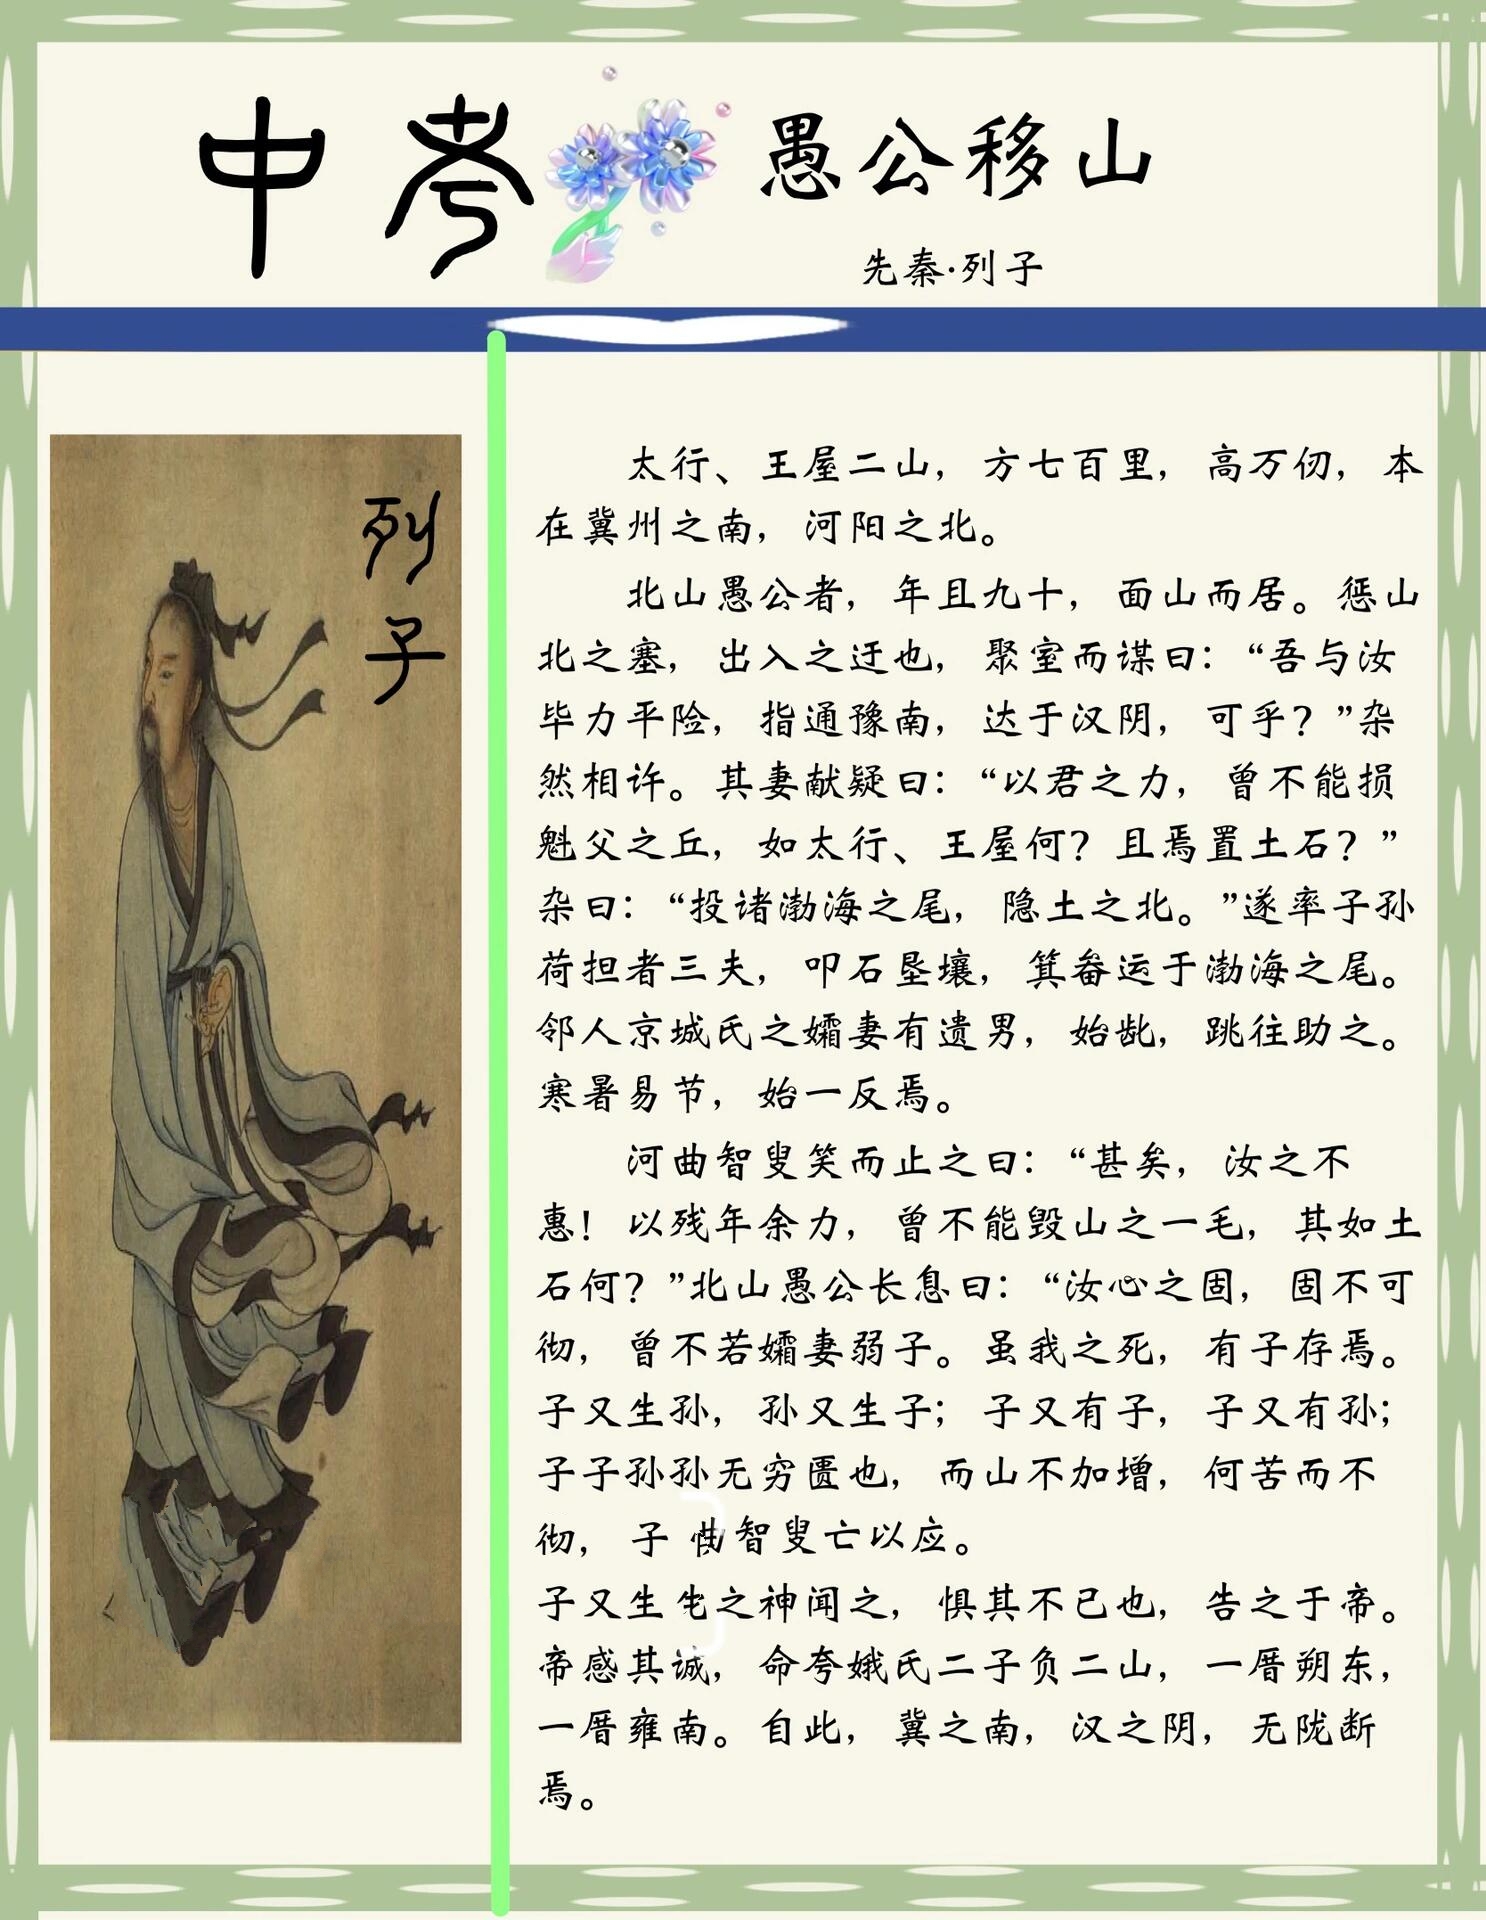 中考
愚公移山
先秦·列子
列子
太行、王屋二山，方七百里，高万仞，本
在冀州之南，河阳之北。
北山愚公者，年且九十，面山而居。惩山
北之塞，出入之迂也，聚室而谋曰：“吾与汝
毕力平险，指通豫南，达于汉阴，可乎？”杂
然相许。其妻献疑曰：“以君之力，曾不能损
魁父之丘，如太行、王屋何？且焉置土石？”
杂曰：“投诸渤海之尾，隐土之北。”遂率子孙
荷担者三夫，叩石垦壤，箕畚运于渤海之尾。
邻人京城氏之孀妻有遗男，始龀，跳往助之。
寒暑易节，始一反焉。
河曲智叟笑而止之曰：“甚矣，汝之不
惠！以残年余力，曾不能毁山之一毛，其如土
石何？”北山愚公长息曰：“汝心之固，固不可
彻，曾不若孀妻弱子。虽我之死，有子存焉。
子又生孙，孙又生子；子又有子，子又有孙；
子子孙孙无穷匮也，而山不加增，何苦而不
彻，子 曲智叟亡以应。
子又生之神闻之，惧其不已也，告之于帝。
帝感其诚，命夸娥氏二子负二山，一厝朔东，
一厝雍南。自此，冀之南，汉之阴，无陇断
焉。